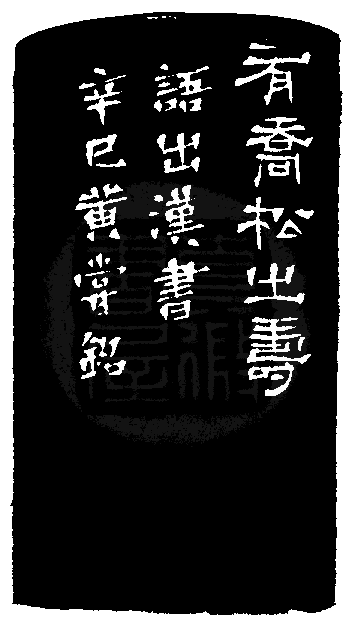 有喬松之壽
語出漢書
辛巳黃嘗銘